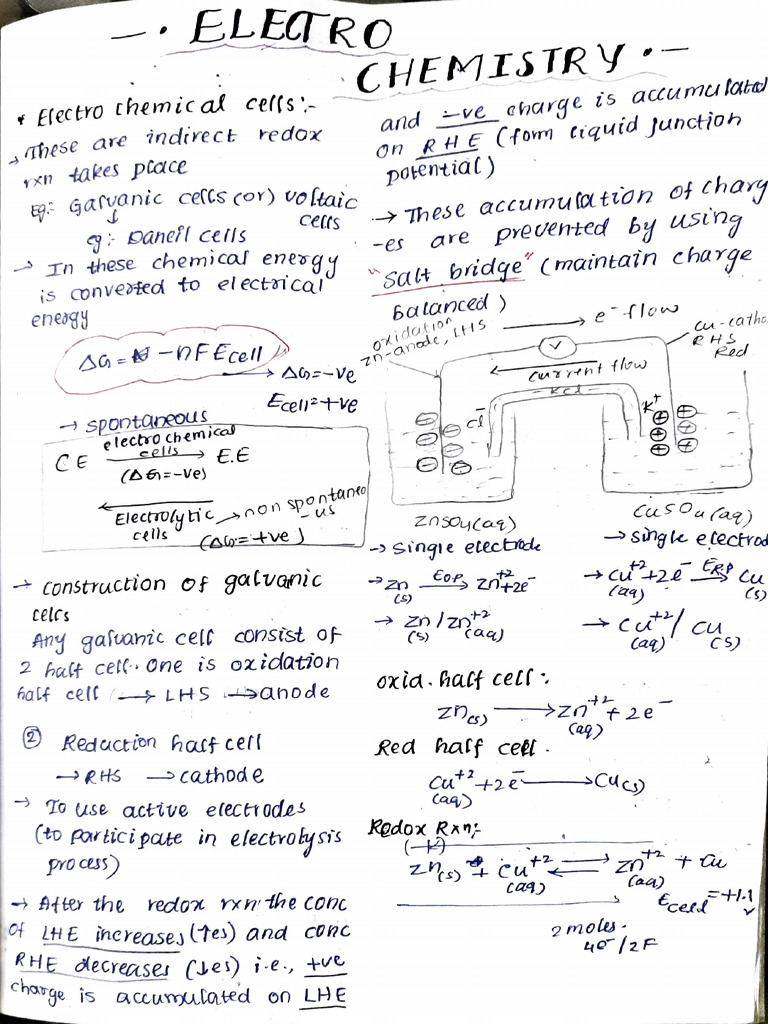 — . ELECTRO
CHEMISTRY . —
* Electro chemical cells :-
→ These are indirect redox
rxn takes place
Eg:- Galvanic cells (or) voltaic
cells
eg :- Daneil cells
→ In these chemical energy
is converted to electrical
energy
ΔG = - nFEcell
→ ΔG = -ve
Ecell = +ve
→ spontaneous
CE electro chemical cells → E.E
(ΔG = -ve)
← Electrolytic cells → non spontaneo
-us
(ΔG = +ve)
→ construction of galvanic
cells
Any galvanic cell consist of
2 half cell. One is oxidation
half cell → LHS → anode
② Reduction half cell
→ RHS → cathode
→ To use active electrodes
(to participate in electrolysis
process)
→ After the redox rxn the conc
of LHE increases (↑es) and conc
RHE decreases (↓es) i.e., +ve
charge is accumulated on LHE
and -ve charge is accumulated
on RHE (form liquid junction
potential)
→ These accumulation of charg
-es are prevented by using
"Salt bridge" (maintain charge
balanced)
oxidation
zn-anode, LHS
→ e⁻ flow
cu-catho
RHS
Red
V
← current flow
KCl
Cl⁻
K⁺
ZnSO4 (aq)
CuSO4 (aq)
→ single electrode
→ Zn(s) EOP → Zn+2 + 2e⁻
→ Zn(s) / Zn+2(aq)
→ single electrod
→ Cu+2(aq) + 2e⁻ ERP → Cu(s)
→ Cu+2(aq) / Cu(s)
oxid. half cell :.
Zn(s) → Zn+2(aq) + 2e⁻
Red half cell .
Cu+2(aq) + 2e⁻ → Cu(s)
Redox Rxn:-
Zn(s) + Cu+2(aq) ⇌ Zn+2(aq) + Cu
Ecell = +1.1 v
2 moles.
4e⁻/2F